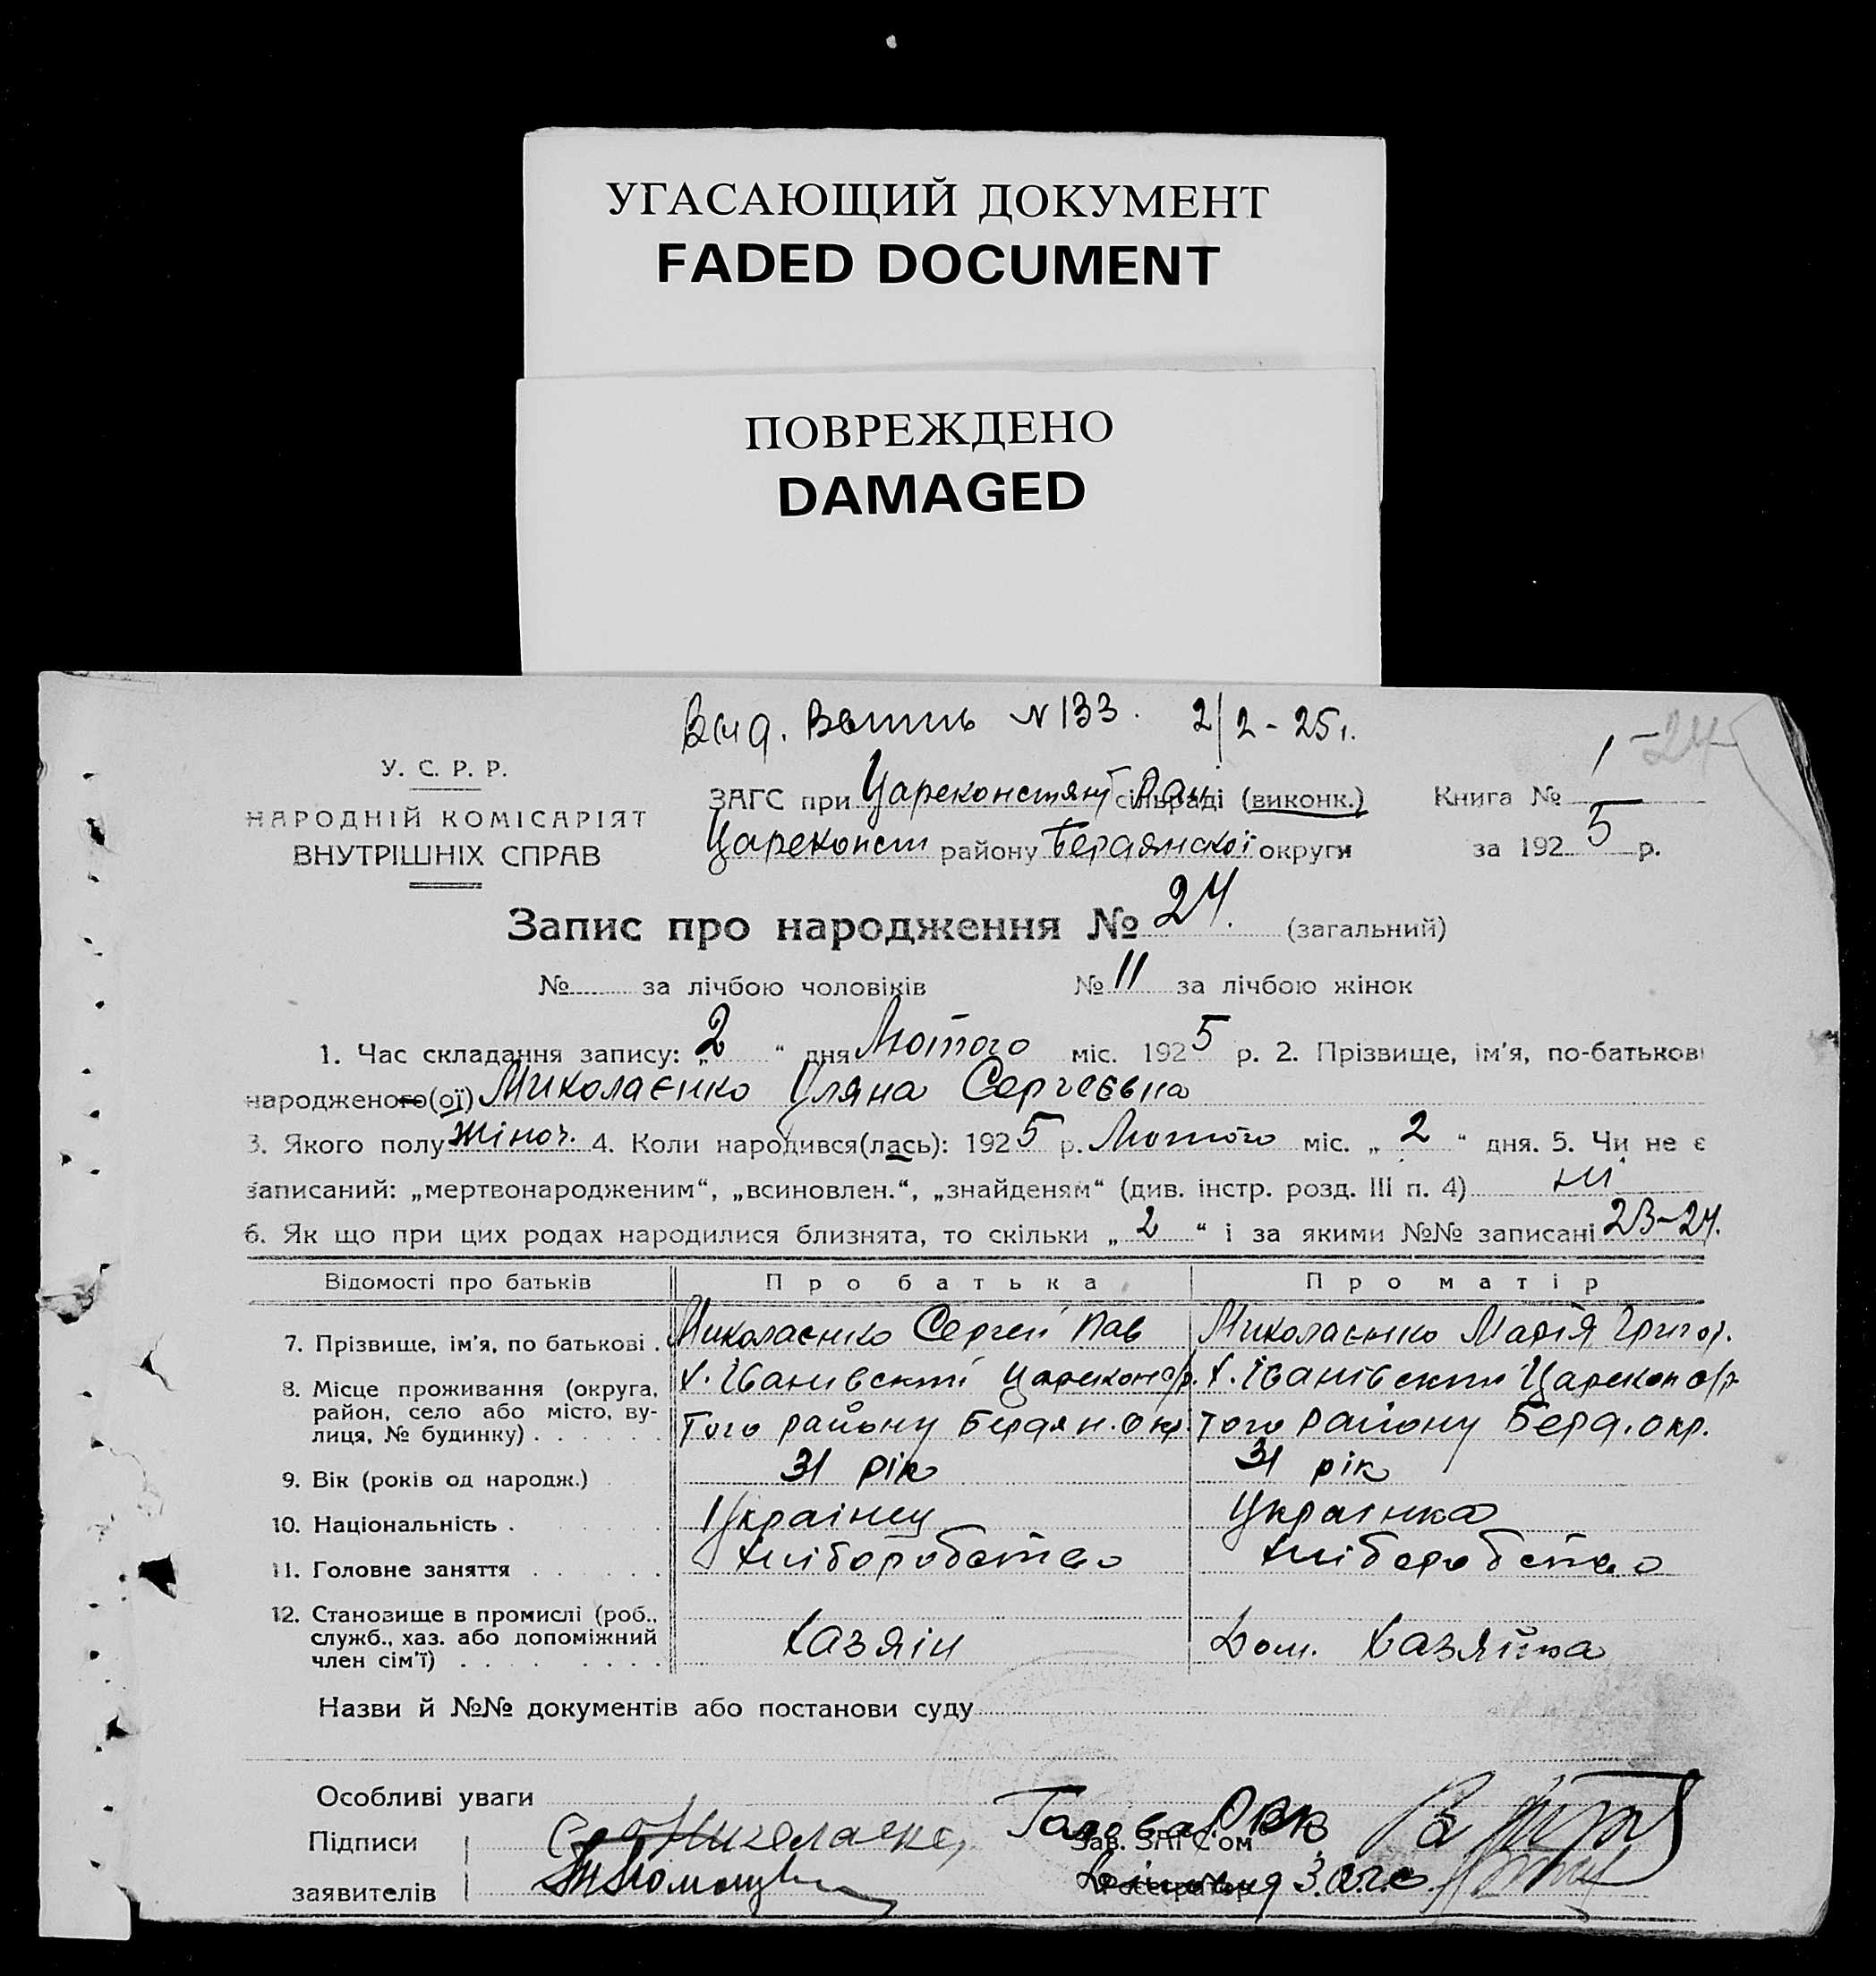 УГАСАЮЩИЙ ДОКУМЕНТ
FADED DOCUMENT
ПОВРЕЖДЕНО
DAMAGED
Вид. N 133. 2/2-25г.
1 24
У. С. Р. Р.
НАРОДНІЙ КОМІСАРІЯТ
ВНУТРІШНІХ СПРАВ
ЗАГС при Цареконстянт сільраді (виконк.) Книга №
Цареконст району Бердянської округи за 1925 р.
Запис про народження № 24. (загальний)
№ за лічбою чоловіків № 11 за лічбою жінок
1. Час складання запису: „2“ дня Лютого міс. 1925 р. 2. Прізвище, ім'я, по-батькові
народженого(ої) Миколаєнко Уляна Сергеєвна
3. Якого полу Жіноч. 4. Коли народився(лась): 1925 р. Лютого міс. „2“ дня. 5. Чи не є
записаний: „мертвонародженим“, „всиновлен.“, „знайденям“ (див. інстр. розд. III п. 4) ні
6. Як що при цих родах народилися близнята, то скільки „2“ і за якими №№ записані 23-24.
Відомості про батьків Про батька Про матір
7. Прізвище, ім'я, по батькові . Миколаєнко Сергей Пав Миколаєнко Марія Григор.
8. Місце проживання (округа, район, село або місто, вулиця, № будинку) . . . . . .
х. Івановскті Царекон с/р. х. Іванівскти Царекон с/р
Того району Бердян. Окр. Того району Берд. окр.
9. Вік (років од народж.) 31 рік 31 рік
10. Національність . Українец Українка
11. Головне заняття . . . . . Хліборобство Хліборобство
12. Становище в промислі (роб., служб., хаз. або допоміжний член сім'ї) . . . . . . . Хазяін Дом. Хазяйка
Назви й №№ документів або постанови суду
Особливі уваги
Підписи Миколаенко Голова РВК
Зав. ЗАГС'ом
заявителів